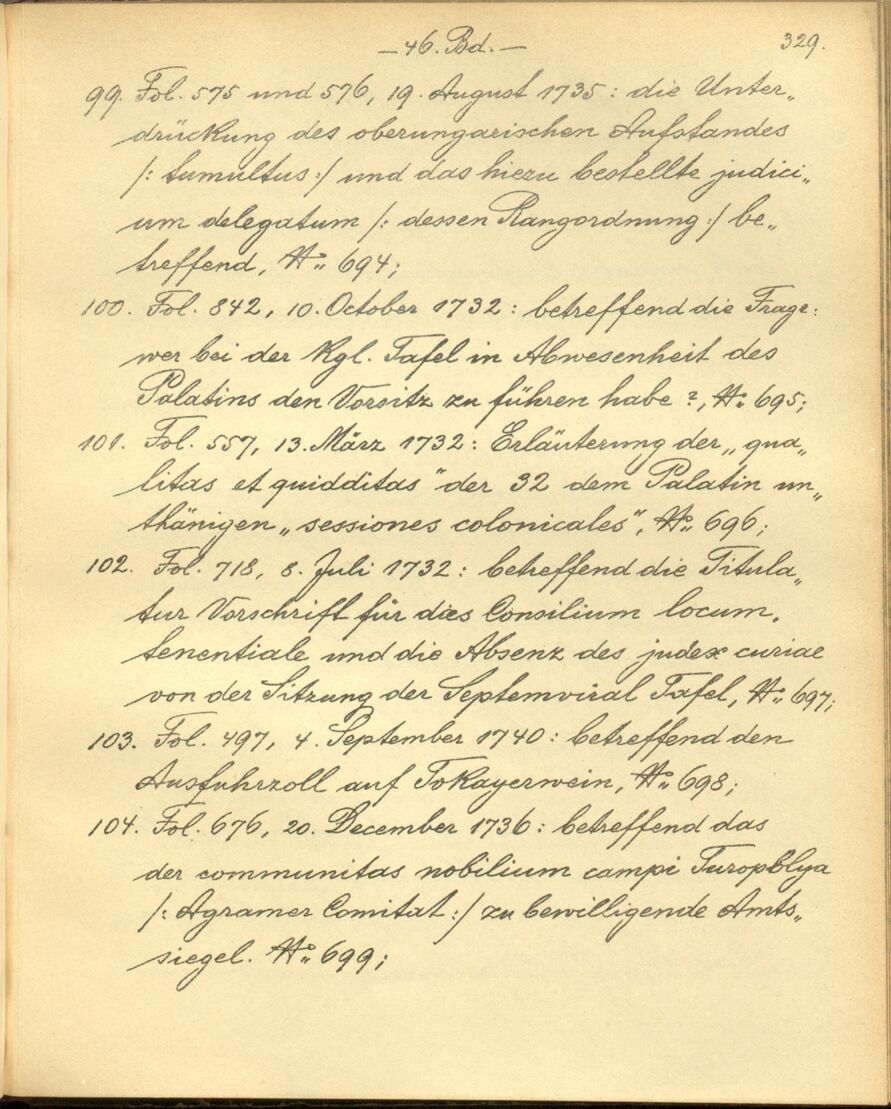 — 46. Bd. — 329.
99. Fol. 575 und 576, 19. August 1735 : die Unter„
drückung des oberungarischen Aufstandes
/: tumultus :/ und das hiezu bestellte judici„
um delegatum /: dessen Rangordnung :/ be„
treffend, No 694;
100. Fol. 842, 10. October 1732 : betreffend die Frage:
wer bei der Kgl. Tafel in Abwesenheit des
Palatins den Vorsitz zu führen habe ?, No 695;
101. Fol. 557, 13. März 1732 : Erläuterung der „qua„
litas et quidditas" der 32 dem Palatin un„
thänigen „sessiones colonicales", No 696;
102. Fol. 718, 8. Juli 1732 : betreffend die Titula„
tur Vorschrift für das Consilium locum„
tenentiale und die Absenz des judex curiae
von der Sitzung der Septemviral Tafel, No 697;
103. Fol. 497, 4. September 1740 : betreffend den
Ausfuhrzoll auf Tokayerwein, No 698;
104. Fol. 676, 20. December 1736 : betreffend das
der communitas nobilium campi Turopolya
/: Agramer Comitat :/ zu bewilligende Amts„
siegel. No 699;